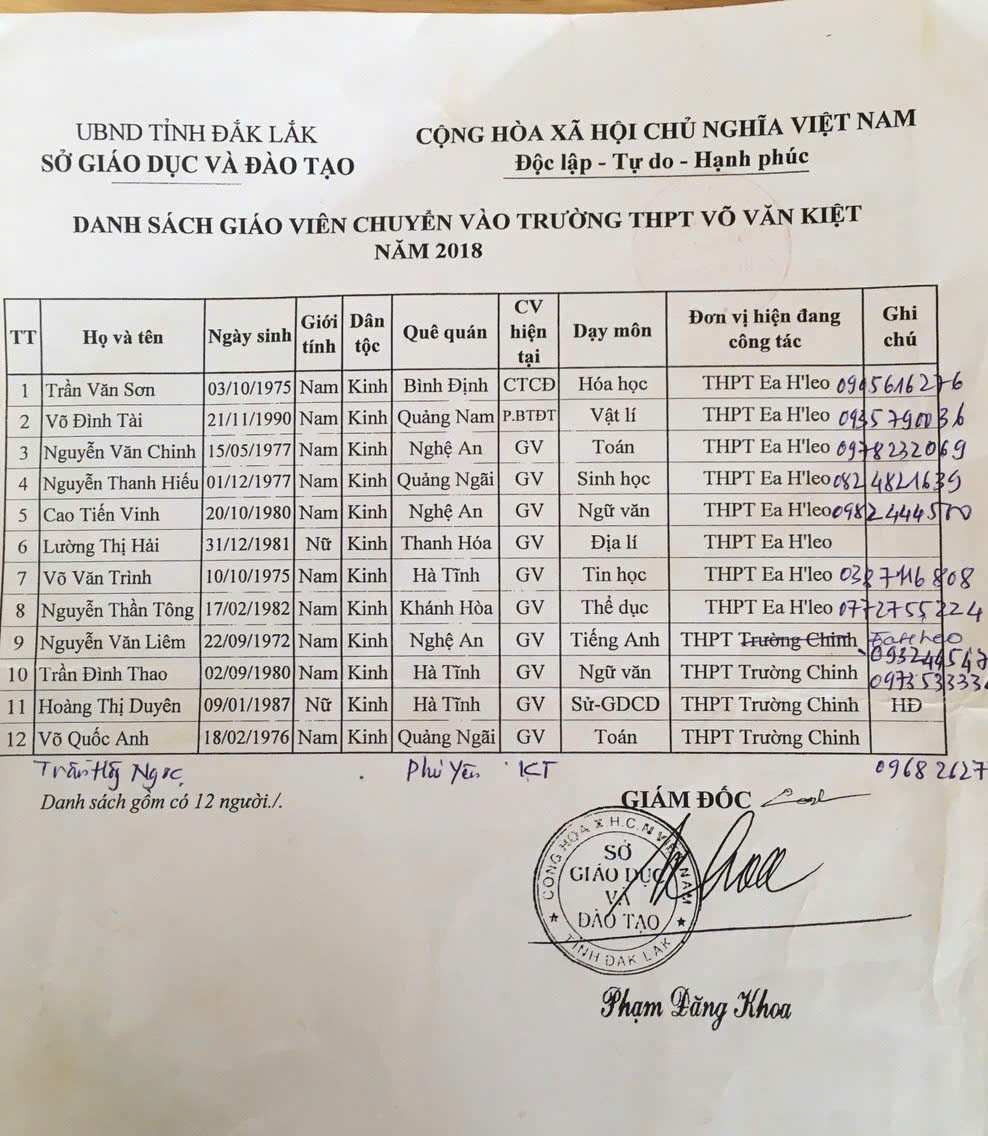 UBND TỈNH ĐẮK LẮK
SỞ GIÁO DỤC VÀ ĐÀO TẠO
CỘNG HÒA XÃ HỘI CHỦ NGHĨA VIỆT NAM
Độc lập - Tự do - Hạnh phúc
DANH SÁCH GIÁO VIÊN CHUYỂN VÀO TRƯỜNG THPT VÕ VĂN KIỆT
NĂM 2018
TT Họ và tên Ngày sinh Giới tính Dân tộc Quê quán CV hiện tại Dạy môn Đơn vị hiện đang công tác Ghi chú
1 Trần Văn Sơn 03/10/1975 Nam Kinh Bình Định CTCĐ Hóa học THPT Ea H'leo
2 Võ Đình Tài 21/11/1990 Nam Kinh Quảng Nam P.BTĐT Vật lí THPT Ea H'leo 0935790036
3 Nguyễn Văn Chinh 15/05/1977 Nam Kinh Nghệ An GV Toán THPT Ea H'leo 0978232069
4 Nguyễn Thanh Hiếu 01/12/1977 Nam Kinh Quảng Ngãi GV Sinh học THPT Ea H'leo 0824821639
5 Cao Tiến Vinh 20/10/1980 Nam Kinh Nghệ An GV Ngữ văn THPT Ea H'leo
6 Lường Thị Hải 31/12/1981 Nữ Kinh Thanh Hóa GV Địa lí THPT Ea H'leo
7 Võ Văn Trình 10/10/1975 Nam Kinh Hà Tĩnh GV Tin học THPT Ea H'leo 0387116808
8 Nguyễn Thần Tông 17/02/1982 Nam Kinh Khánh Hòa GV Thể dục THPT Ea H'leo 0772755224
9 Nguyễn Văn Liêm 22/09/1972 Nam Kinh Nghệ An GV Tiếng Anh THPT Trường Chinh
093244547
10 Trần Đình Thao 02/09/1980 Nam Kinh Hà Tĩnh GV Ngữ văn THPT Trường Chinh
11 Hoàng Thị Duyên 09/01/1987 Nữ Kinh Hà Tĩnh GV Sử-GDCD THPT Trường Chinh HĐ
12 Võ Quốc Anh 18/02/1976 Nam Kinh Quảng Ngãi GV Toán THPT Trường Chinh
Trần Ngọc Phú Yên KT 0968 2627
Danh sách gồm có 12 người./.
GIÁM ĐỐC
CỘNG HÒA X.H.C.N VIỆT NAM
SỞ
GIÁO DỤC
VÀ
ĐÀO TẠO
TỈNH ĐAK LAK
Phạm Đăng Khoa